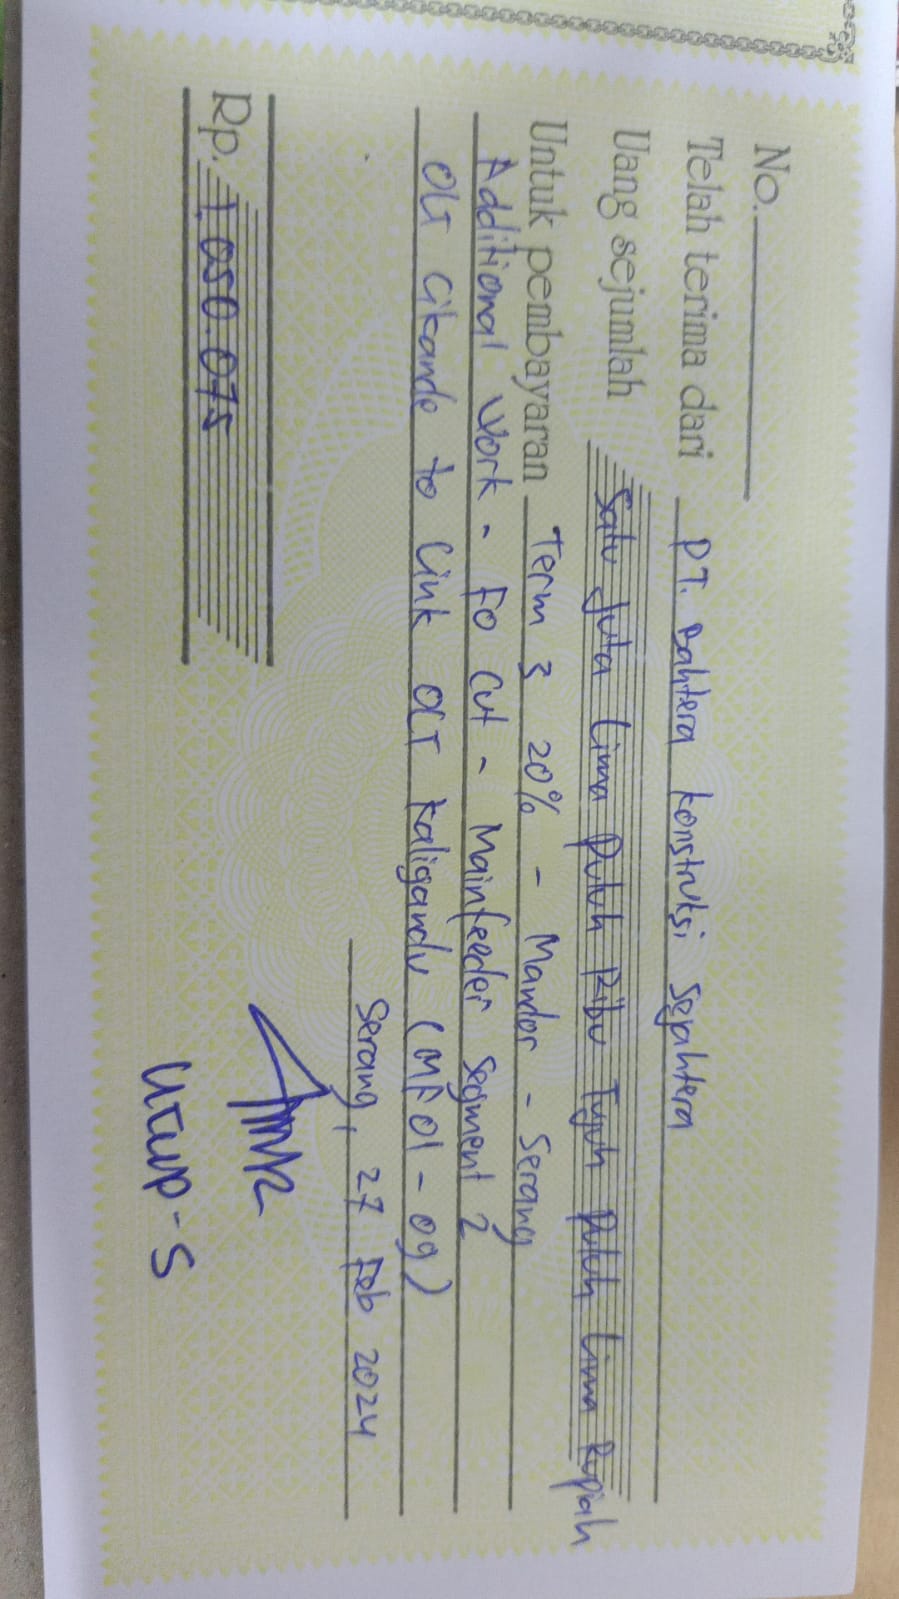 No.
Telah terima dari PT. Bahtera Konstruksi Sejahtera
Uang sejumlah Satu Juta Lima Puluh Ribu Tujuh Puluh Lima Rupiah
Untuk pembayaran Term 3 20% - Mandor - Serang
Additional Work - FO Cut - Mainfeeder Segment 2
OLT Cikande to Link OLT Kaligandu (MF01-09)
Serang, 27 Feb 2024
Rp. 1.050.075